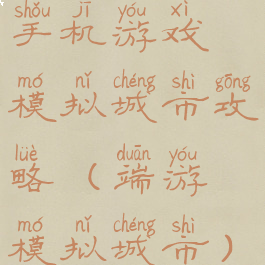 shǒu jī yóu xì
手机游戏
mó nǐ chéng shì gōng
模拟城市攻
lüè duān yóu
略（端游
mó nǐ chéng shì
模拟城市）